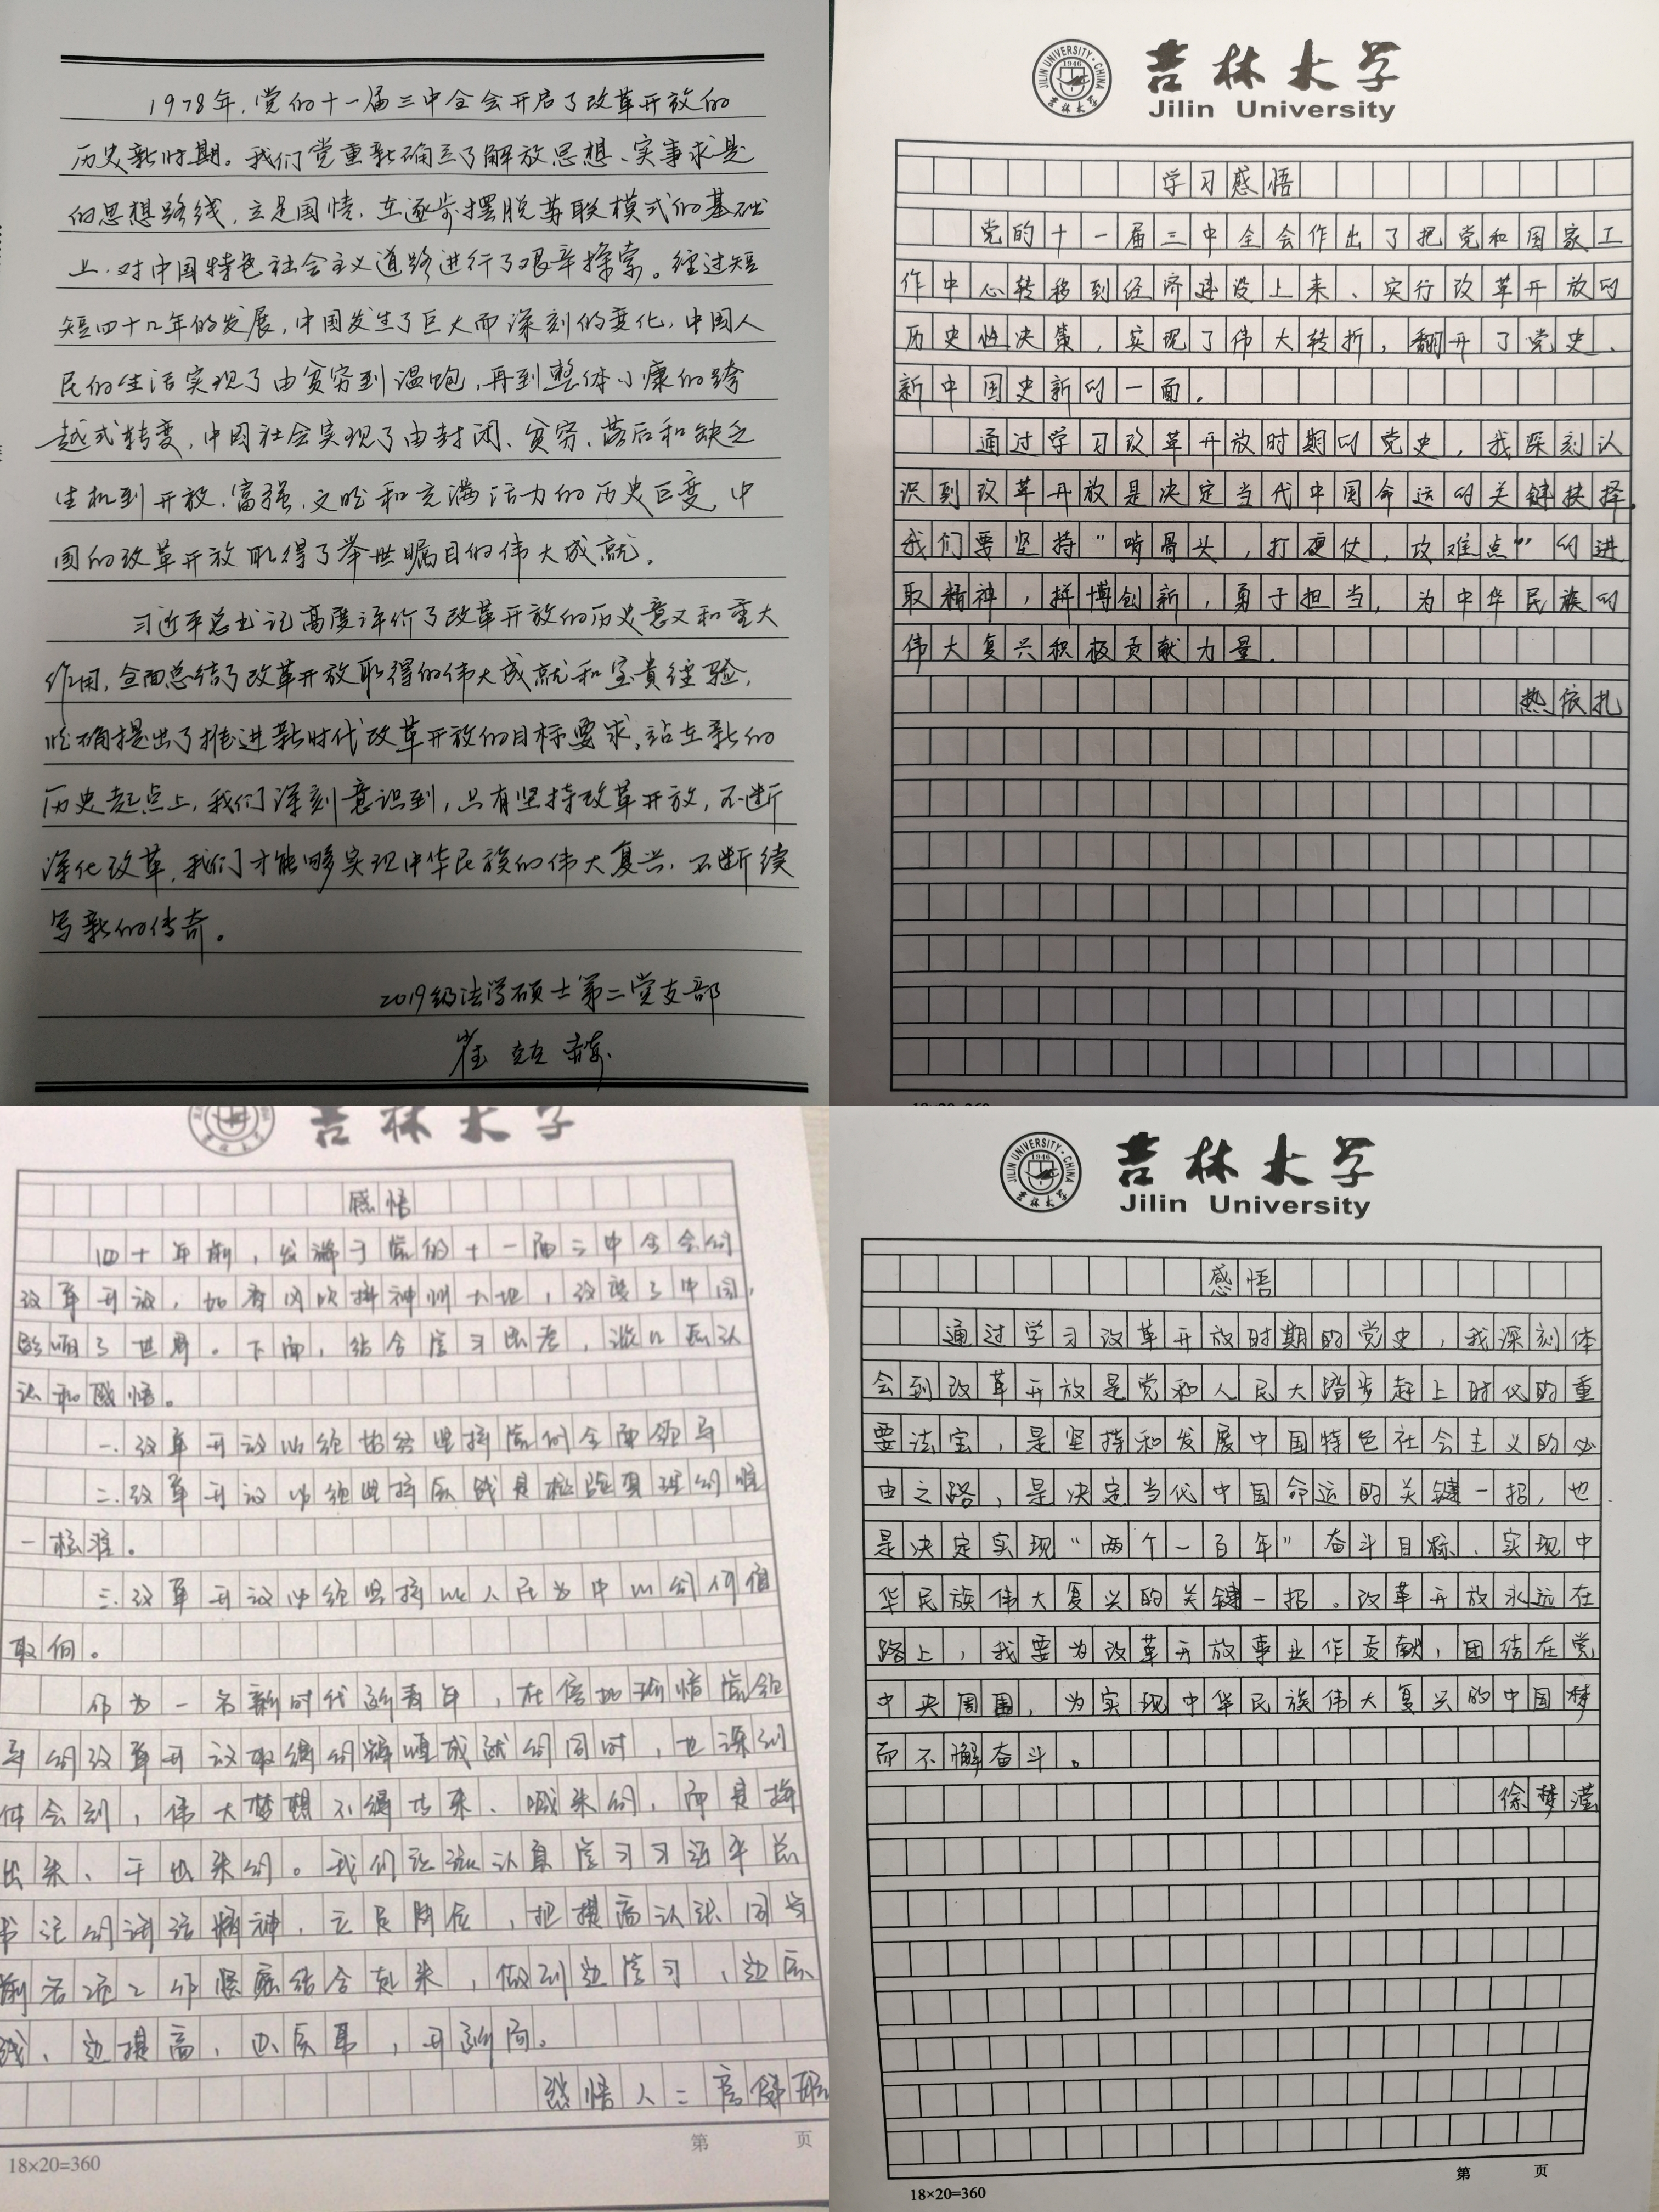 1978年,党的十一届三中全会开启了改革开放的
历史新时期。我们党重新确立了解放思想、实事求是
的思想路线,立足国情,在逐步摆脱苏联模式的基础
上,对中国特色社会主义道路进行了艰辛探索。经过短
短四十几年的发展,中国发生了巨大而深刻的变化,中国人
民的生活实现了由贫穷到温饱,再到整体小康的跨
越式转变,中国社会实现了由封闭、贫穷、落后和缺乏
生机到开放、富强、文明和充满活力的历史巨变,中
国的改革开放取得了举世瞩目的伟大成就。
习近平总书记高度评价了改革开放的历史意义和重大
作用,全面总结了改革开放取得的伟大成就和宝贵经验,
明确提出了推进新时代改革开放的目标要求,站在新的
历史起点上,我们深刻意识到,只有坚持改革开放,不断
深化改革,我们才能够实现中华民族的伟大复兴,不断续
写新的传奇。
2019级法学硕士第二党支部
崔
JILIN UNIVERSITY·CHINA
1946
吉林大学
吉林大学
Jilin University
学习感悟
党的十一届三中全会作出了把党和国家工
作中心转移到经济建设上来、实行改革开放的
历史性决策,实现了伟大转折,翻开了党史、
新中国史新的一面。
通过学习改革开放时期的党史,我深刻认
识到改革开放是决定当代中国命运的关键抉择。
我们要坚持“啃骨头,打硬仗,攻难点”的进
取精神,拼博创新,勇于担当,为中华民族的
伟大复兴积极贡献力量.
热依扎
吉林大学
感悟
四十年前,发端于党的十一届三中全会的
改革开放,如春风吹拂神州大地,改变了中国,
影响了世界。下面,结合学习思考,谈几点认
识和感悟。
一.改革开放必须始终坚持党的全面领导
二.改革开放必须坚持实践是检验真理的唯
一标准。
三.改革开放必须坚持以人民为中心的价值
取向。
作为一名新时代新青年,在倍加珍惜党领
导的改革开放取得的辉煌成就的同时,也深刻
体会到,伟大梦想不得等来、喊来的,而是拼
出来、干出来的。我们应该认真学习习近平总
书记的讲话精神,立足岗位,把提高认识同当
前各项工作紧密结合起来,做到边学习、边实
践、边提高,出实事,开新局。
感悟人:
第 页
18×20=360
JILIN UNIVERSITY·CHINA
1946
吉林大学
吉林大学
Jilin University
感悟
通过学习改革开放时期的党史,我深刻体
会到改革开放是党和人民大踏步赶上时代的重
要法宝,是坚持和发展中国特色社会主义的必
由之路,是决定当代中国命运的关键一招,也
是决定实现“两个一百年”奋斗目标、实现中
华民族伟大复兴的关键一招。改革开放永远在
路上,我要为改革开放事业作贡献,团结在党
中央周围,为实现中华民族伟大复兴的中国梦
而不懈奋斗。
徐梦滢
第 页
18×20=360